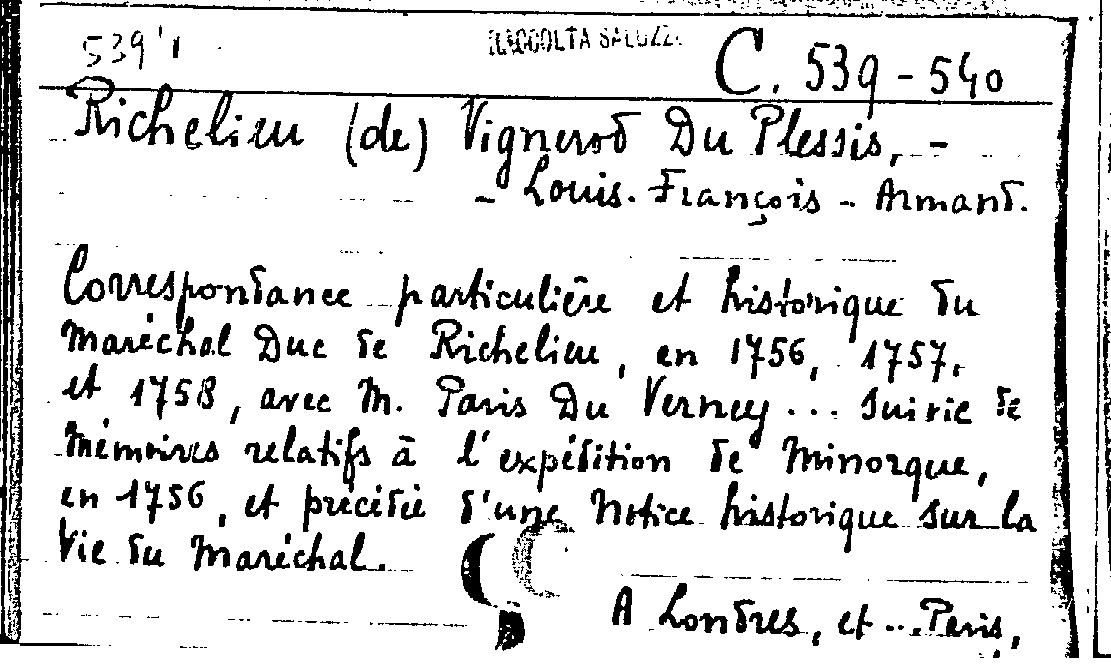 539'1 RACCOLTA SALUZZO C. 539-540
Richelieu (de) Vignerod Du Plessis, -
- Louis-François-Armand.
Correspondance particulière et historique du
Maréchal Duc de Richelieu, en 1756, 1757,
et 1758, avec M. Paris Du Verney... suivie de
Mémoires relatifs à l'expédition de Minorque,
en 1756, et précédée d'une Notice historique sur la
Vie du Maréchal.
A Londres, et ... Paris,